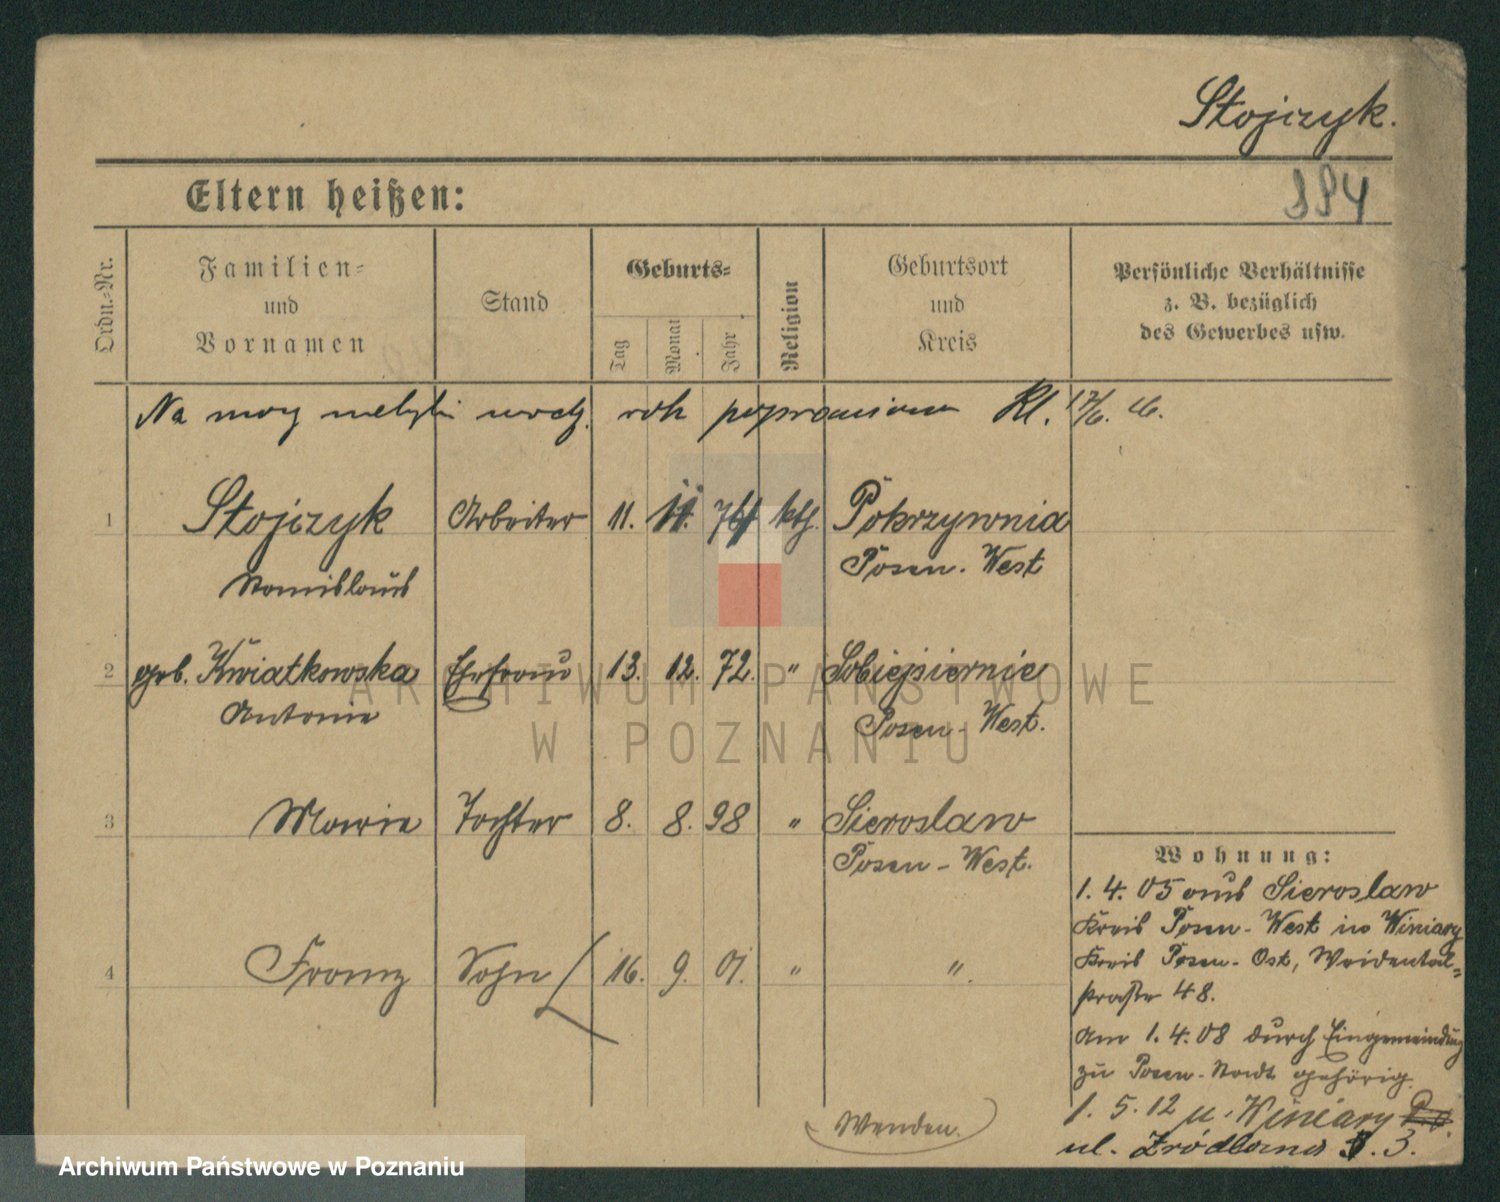 Stojczyk.
Eltern heißen:
994
Ordn.-Nr.
Familien-
und
Vornamen
Stand
Geburts-
Tag
Monat
Jahr
Religion
Geburtsort
und
Kreis
Persönliche Verhältnisse
z. B. bezüglich
des Gewerbes usw.
Na mocy metryki urodz. rok poprawiono Kl. 17/6. 26.
1 Stojczyk Arbeiter 11. 11. 74 kth. Pokrzywnia
Stanislaus Posen-West
2 geb. Kwiatkowska Ehefrau 13. 12. 72. " Sobiejsiernie
Antonie Posen-West.
3 Marie Tochter 8. 8. 98 " Sieroslaw
Posen-West.
4 Franz Sohn 16. 9. 01. " ".
Wohnung:
1. 4. 05 aus Sieroslaw
Kreis Posen-West in Winiary
Kreis Posen-Ost, Weidental-
straße 48.
Am 1. 4. 08 durch Eingemeindung
zu Posen-Stadt gehörig.
1. 5. 12 u. Winiary
ul. Źródlana 3.
Wenden.
ARCHIWUM PAŃSTWOWE
W POZNANIU
Archiwum Państwowe w Poznaniu